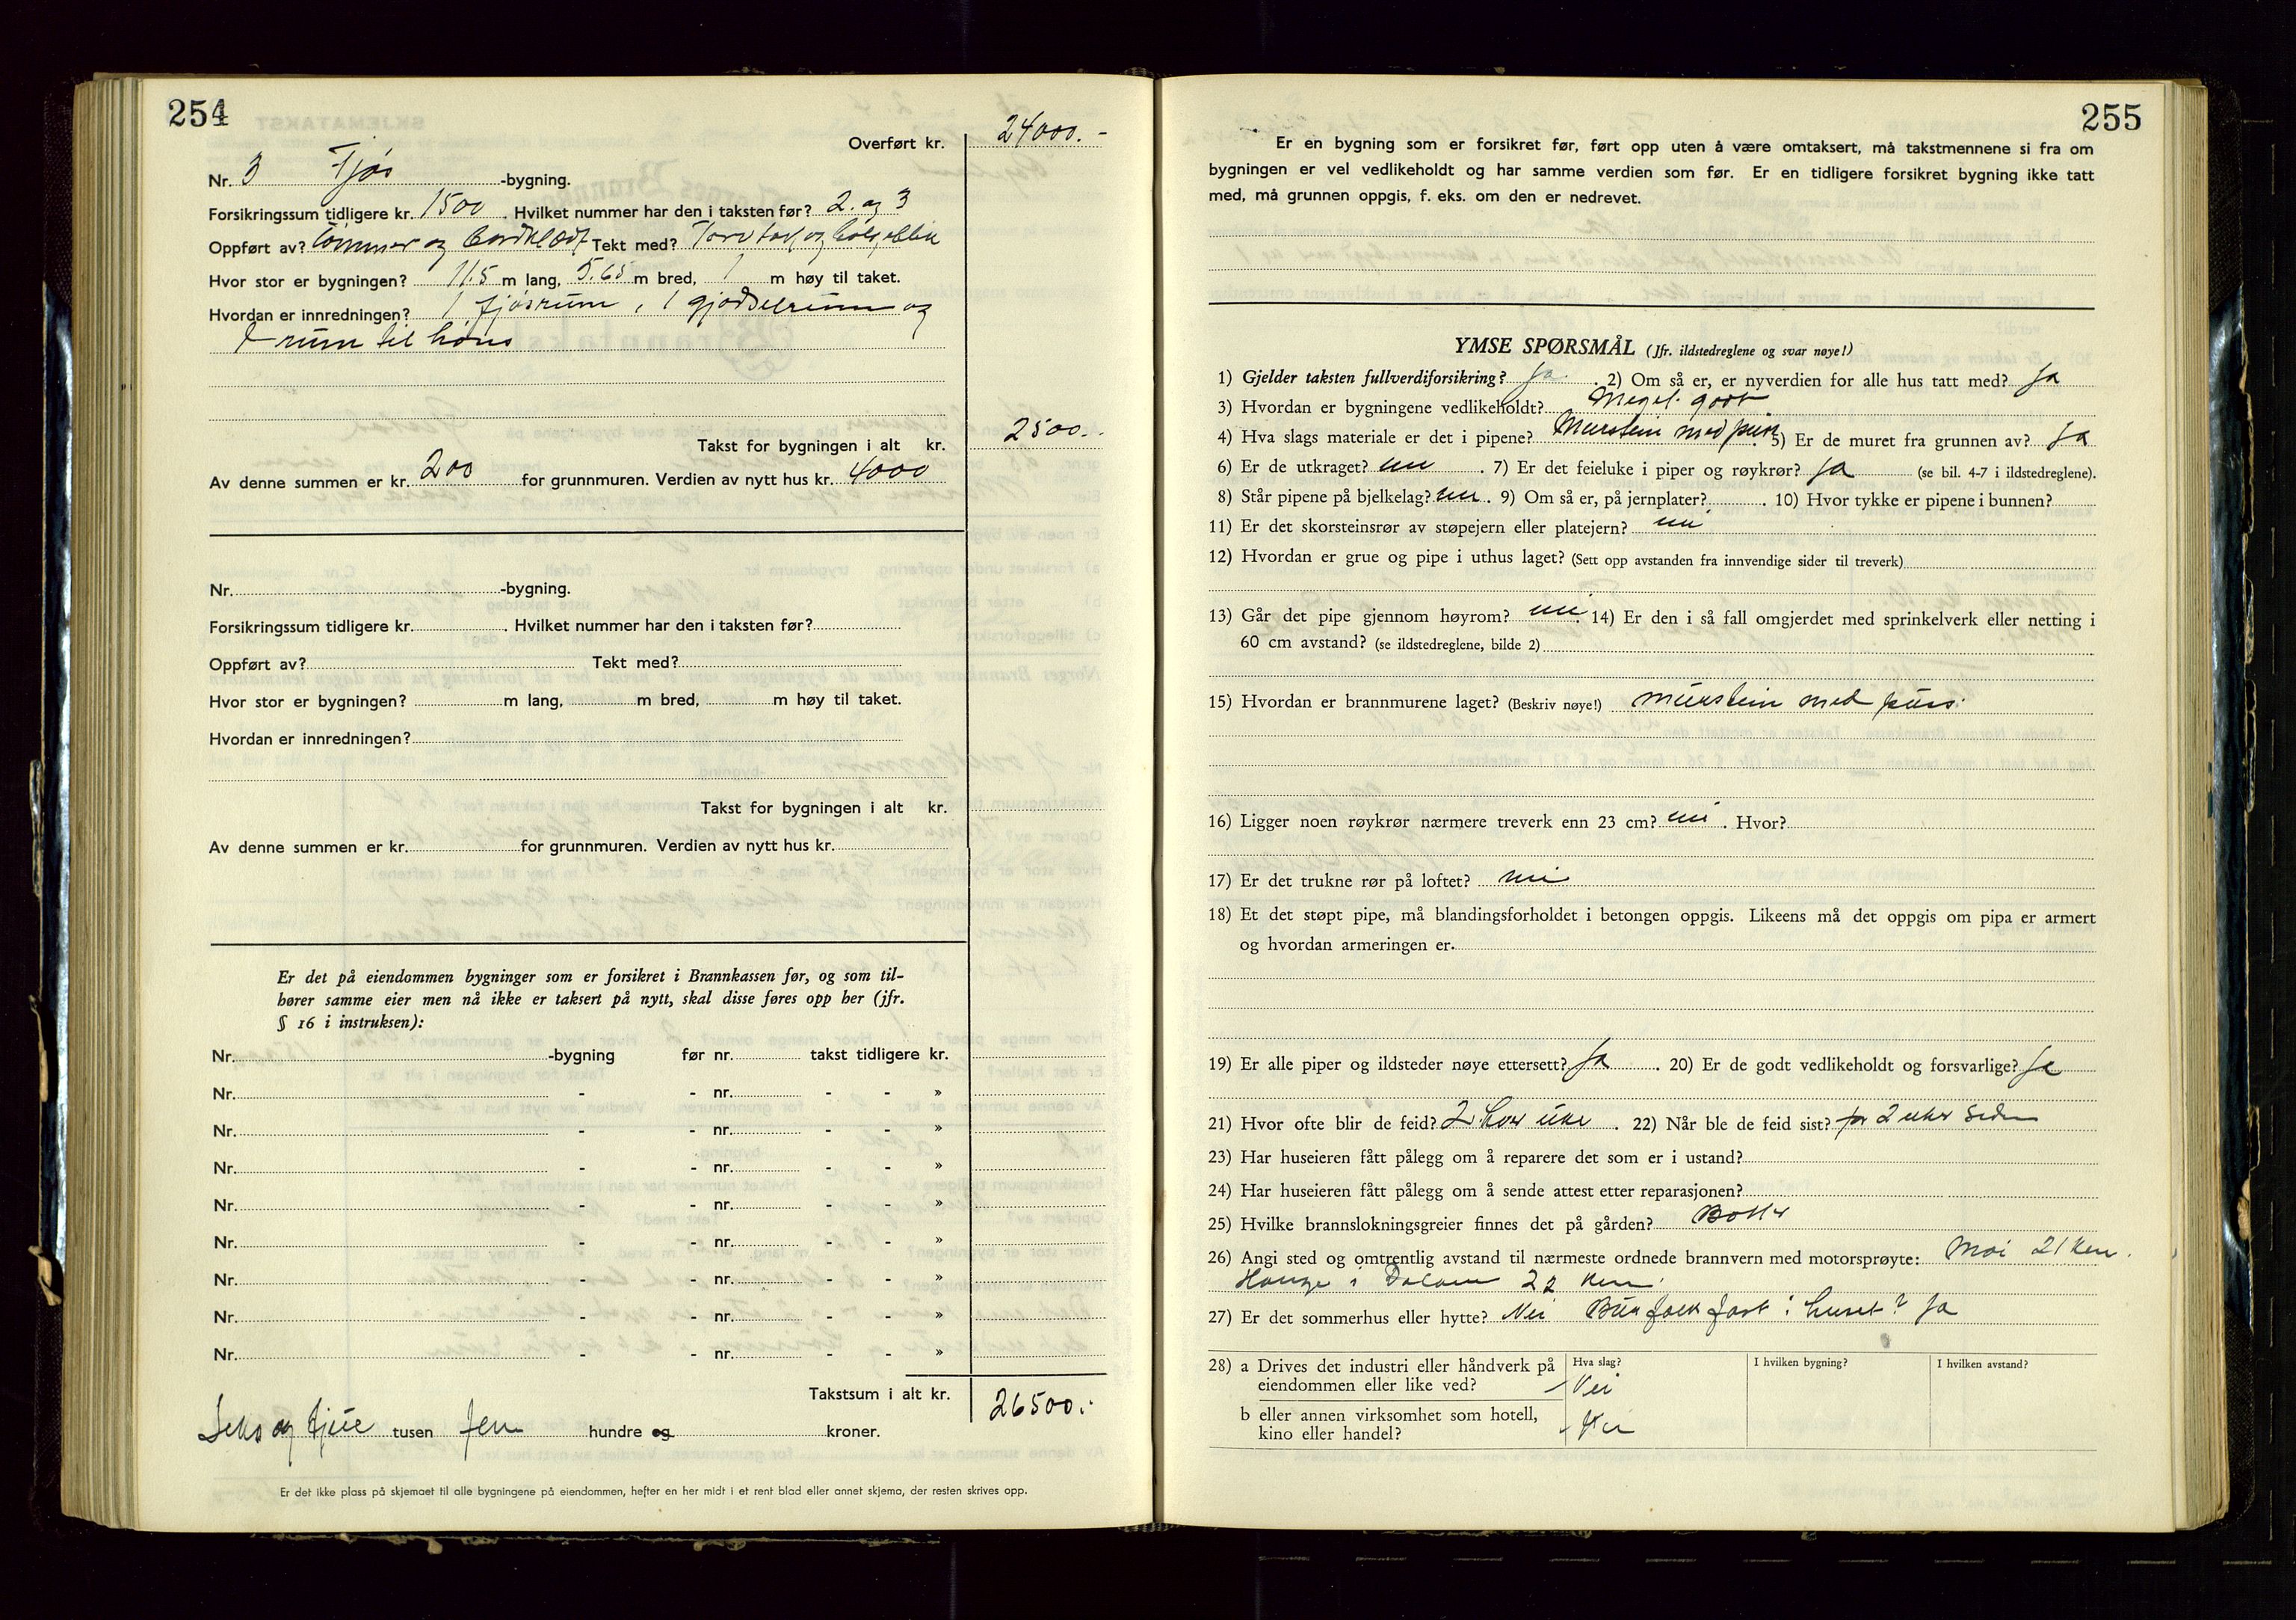 254
Overført kr. 24000.-
Nr. 3 Fjøs -bygning.
Forsikringssum tidligere kr. 1500. Hvilket nummer har den i taksten før? 2. og 3
Oppført av? Tømmer og bordklædt Tekt med? Torvtak og
Hvor stor er bygningen? 11.5 m lang, 5.65 m bred, 1 m høy til taket.
Hvordan er innredningen? 1 fjøsrum, 1 gjødselrum og
1 rum til høns
Takst for bygningen i alt kr. 2500.-
Av denne summen er kr. 200 for grunnmuren. Verdien av nytt hus kr. 4000
Nr. -bygning.
Forsikringssum tidligere kr. . Hvilket nummer har den i taksten før?
Oppført av? Tekt med?
Hvor stor er bygningen? m lang, m bred, m høy til taket.
Hvordan er innredningen?
Takst for bygningen i alt kr.
Av denne summen er kr. for grunnmuren. Verdien av nytt hus kr.
Er det på eiendommen bygninger som er forsikret i Brannkassen før, og som til-
hører samme eier men nå ikke er taksert på nytt, skal disse føres opp her (jfr.
§ 16 i instruksen):
Nr. -bygning før nr. takst tidligere kr.
Nr. - - nr. - - »
Nr. - - nr. - - »
Nr. - - nr. - - »
Nr. - - nr. - - »
Nr. - - nr. - - »
Nr. - - nr. - - »
Nr. - - nr. - - »
Nr. - - nr. - - »
Takstsum i alt kr. 26500.-
Seks og tjue tusen fem hundre og kroner.
Er det ikke plass på skjemaet til alle bygningene på eiendommen, hefter en her midt i et rent blad eller annet skjema, der resten skrives opp.
255
Er en bygning som er forsikret før, ført opp uten å være omtaksert, må takstmennene si fra om
bygningen er vel vedlikeholdt og har samme verdien som før. Er en tidligere forsikret bygning ikke tatt
med, må grunnen oppgis, f. eks. om den er nedrevet.
YMSE SPØRSMÅL (Jfr. ildstedreglene og svar nøye!)
1) Gjelder taksten fullverdiforsikring? Ja. 2) Om så er, er nyverdien for alle hus tatt med? Ja
3) Hvordan er bygningene vedlikeholdt? Meget godt
4) Hva slags materiale er det i pipene? Murstein med puss 5) Er de muret fra grunnen av? Ja
6) Er de utkraget? nei. 7) Er det feieluke i piper og røykrør? Ja (se bil. 4-7 i ildstedreglene).
8) Står pipene på bjelkelag? nei. 9) Om så er, på jernplater? . 10) Hvor tykke er pipene i bunnen?
11) Er det skorsteinsrør av støpejern eller platejern? nei
12) Hvordan er grue og pipe i uthus laget? (Sett opp avstanden fra innvendige sider til treverk)
13) Går det pipe gjennom høyrom? nei. 14) Er den i så fall omgjerdet med sprinkelverk eller netting i
60 cm avstand? (se ildstedreglene, bilde 2)
15) Hvordan er brannmurene laget? (Beskriv nøye!) murstein med puss.
16) Ligger noen røykrør nærmere treverk enn 23 cm? nei. Hvor?
17) Er det trukne rør på loftet? nei
18) Et det støpt pipe, må blandingsforholdet i betongen oppgis. Likeens må det oppgis om pipa er armert
og hvordan armeringen er.
19) Er alle piper og ildsteder nøye ettersett? Ja. 20) Er de godt vedlikeholdt og forsvarlige? Ja
21) Hvor ofte blir de feid? 2. hver uke. 22) Når ble de feid sist? for 2 uker siden
23) Har huseieren fått pålegg om å reparere det som er i ustand?
24) Har huseieren fått pålegg om å sende attest etter reparasjonen?
25) Hvilke brannslokningsgreier finnes det på gården? Bøtter
26) Angi sted og omtrentlig avstand til nærmeste ordnede brannvern med motorsprøyte: Moi 21 km.
Hauge i Dalane 22 km.
27) Er det sommerhus eller hytte? Nei Bur folk fast i huset? Ja
28) a Drives det industri eller håndverk på
eiendommen eller like ved?
Hva slag? I hvilken bygning? I hvilken avstand?
Nei
b eller annen virksomhet som hotell,
kino eller handel?
Nei